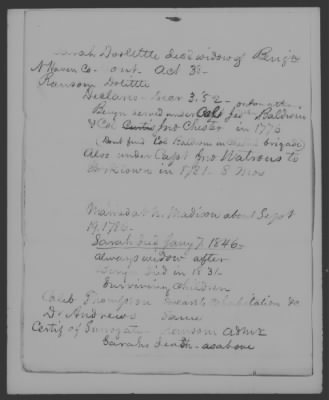 Sarah Doolittle decd widow of Benjn
N Haven Co - Cont. Act 38 -
Ransom Dolittle
Declares - Mar 3. '52 -
Benjn served under Capt Baldwin
& Col Curtis Jno Chester in 1776
(Dont find Col Baldwin in brigade)
Also under Capt Jno Watrous to
Yorktown in 1781 - 8 mos
Married at N. Madison about Sept
19. 1786 -
Sarah died Jany 7. 1846 -
always widow after
Benjn died in 1831 -
Surviving children
Caleb Thompson Swears cohabitation &c
Dr Andrews Same
Certif of Surrogate - Ransom admr
Sarahs death - as above